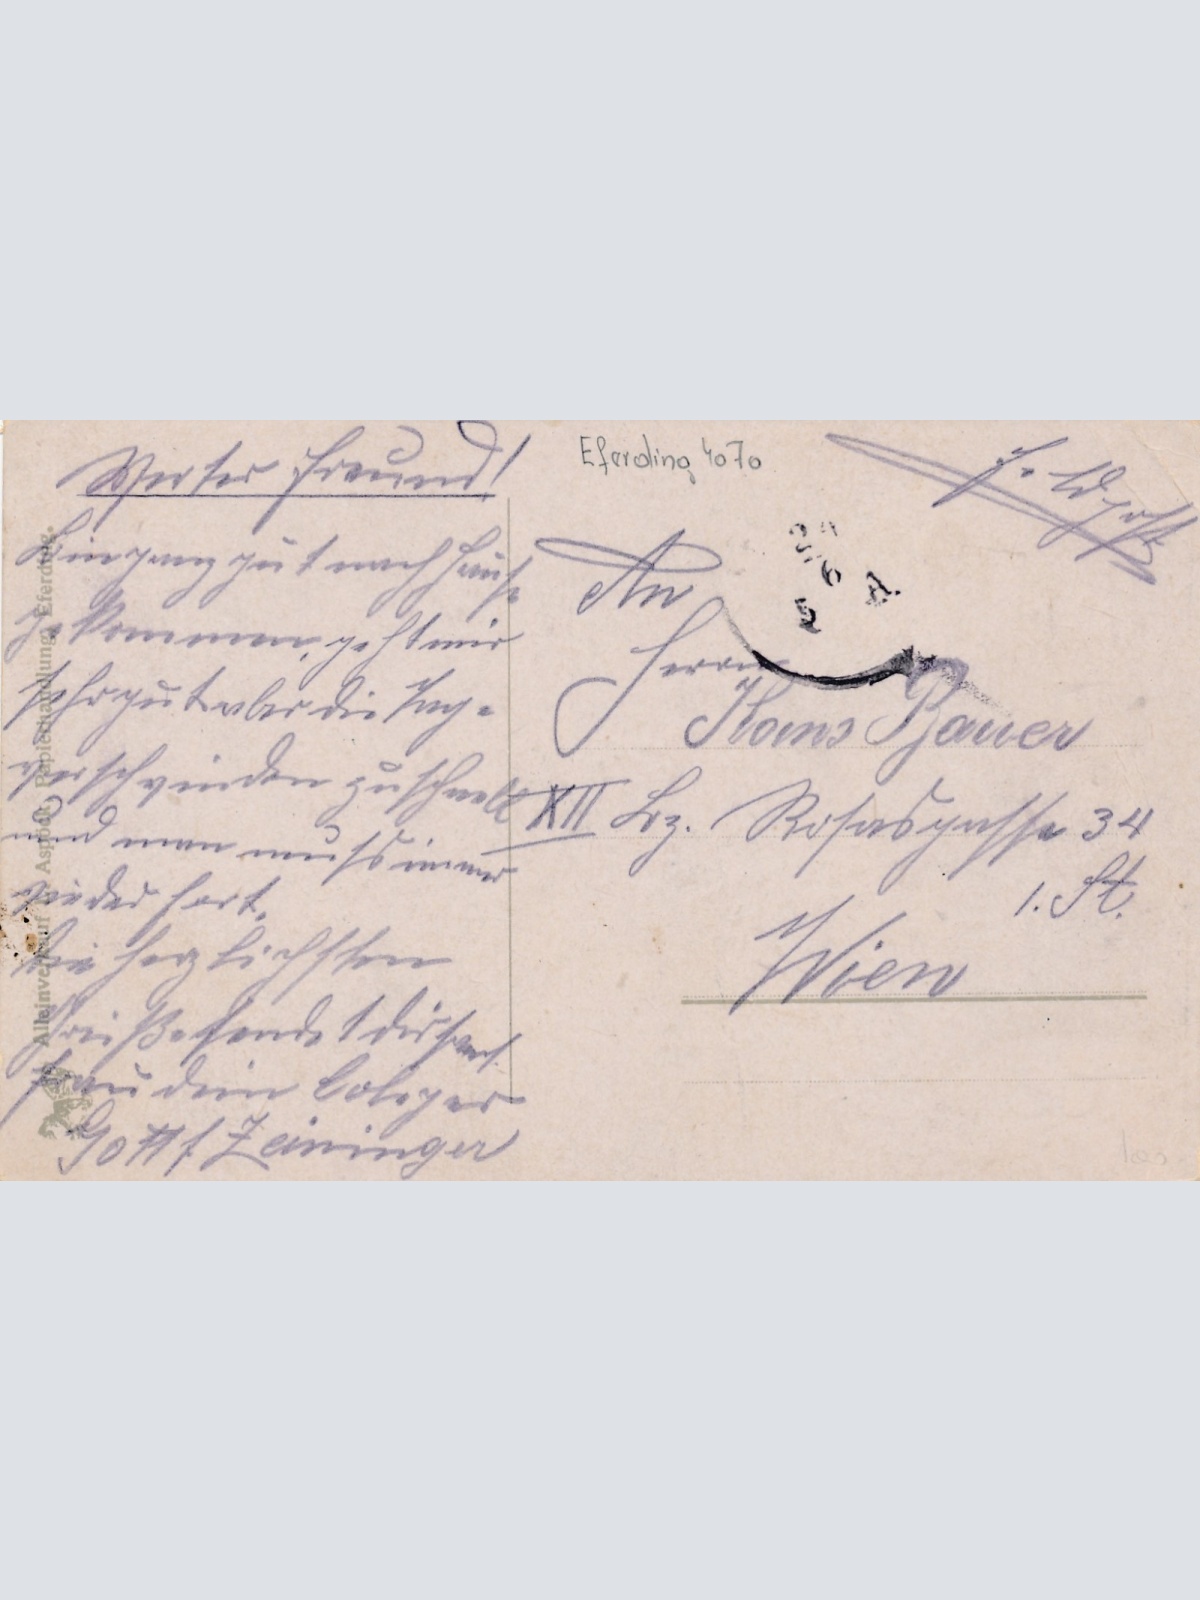 Werter Freund!
Bin ganz gut nach Hause
gekommen, geht mir
sehr gut aber die Tage
verschwinden zu schnell
und man muß immer
wieder fort.
Die herzlichsten
Grüße sendet dir samt
Frau dein Coleger
Gottf Zeininger
Eferding 4070
Feldpost
An
Herrn
Hans Bauer
XII Bz. Rosasgasse 34
1. St.
Wien
Alleinverkauf Aspöck, Papierhandlung, Eferding.